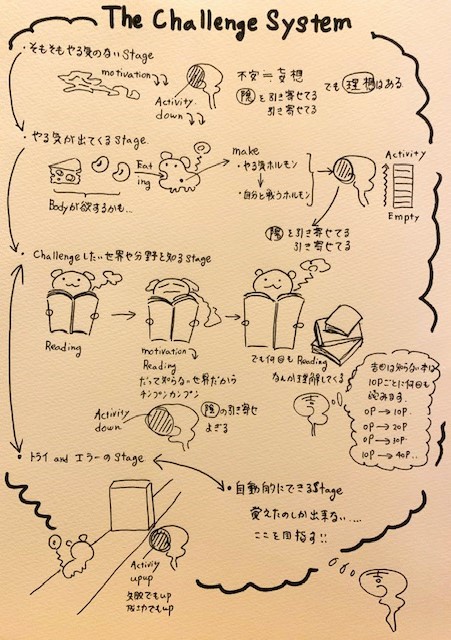 The Challenge System
・そもそもやる気のないStage
motivation↓↓
Activity
down↓↓
不安＝妄想
陰を引き寄せてる
引き寄せてる
でも理想はある
・やる気が出てくるStage
Eat
ing
Bodyが欲するかも..
make
・やる気ホルモン
↓
・自分と戦うホルモン
Activity
Empty
陽を引き寄せてる
引き寄せてる
・Challengeしたい世界や分野を知るStage
Reading
motivation↓
Reading
だって知らない世界だから
チンプンカンプン
でも何回もReading
なんか理解してくる
Activity
down
陰の引き寄せ
よぎる
吉田は知らない本は
10Pごとに何回も
読みます.
0P→10P.
0P→20P
0P→30P.
10P→40P..
・トライandエラーのStage
・自動的にできるStage
覚えたのしか出来ない....
ここを目指す!!
Activity
upup
失敗でもup
成功でもup